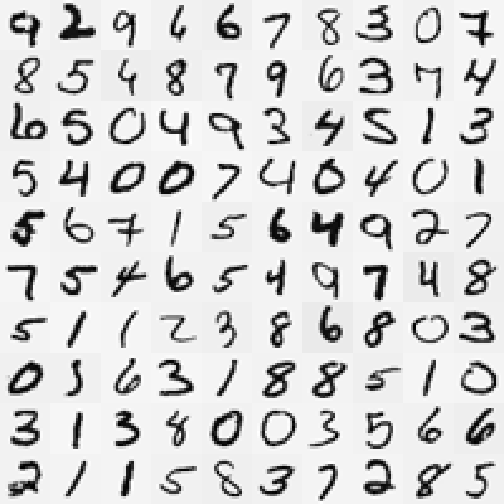 9 2 9 6 6 7 8 3 0 7
8 5 4 8 7 9 6 3 7 4
6 5 0 4 9 3 4 5 1 3
5 4 0 0 7 4 0 4 0 1
5 6 7 1 5 6 4 9 2 7
7 5 4 6 5 4 9 7 4 8
5 1 1 2 3 8 6 8 0 3
0 5 6 3 1 8 8 5 1 0
3 1 3 8 0 0 3 5 6 6
2 1 1 5 8 3 7 2 8 5